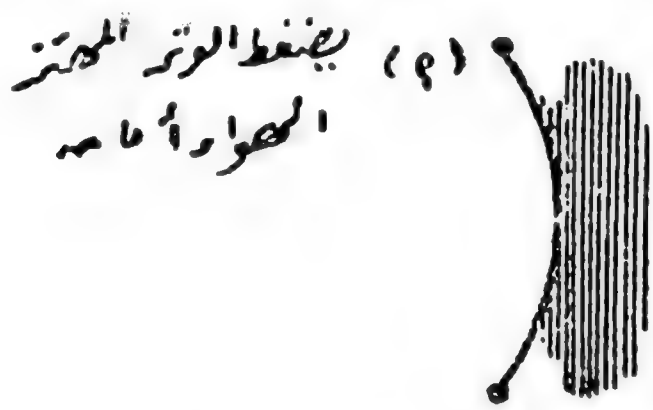 (م) يضغط الوتر المهتز
الهواء أمامه